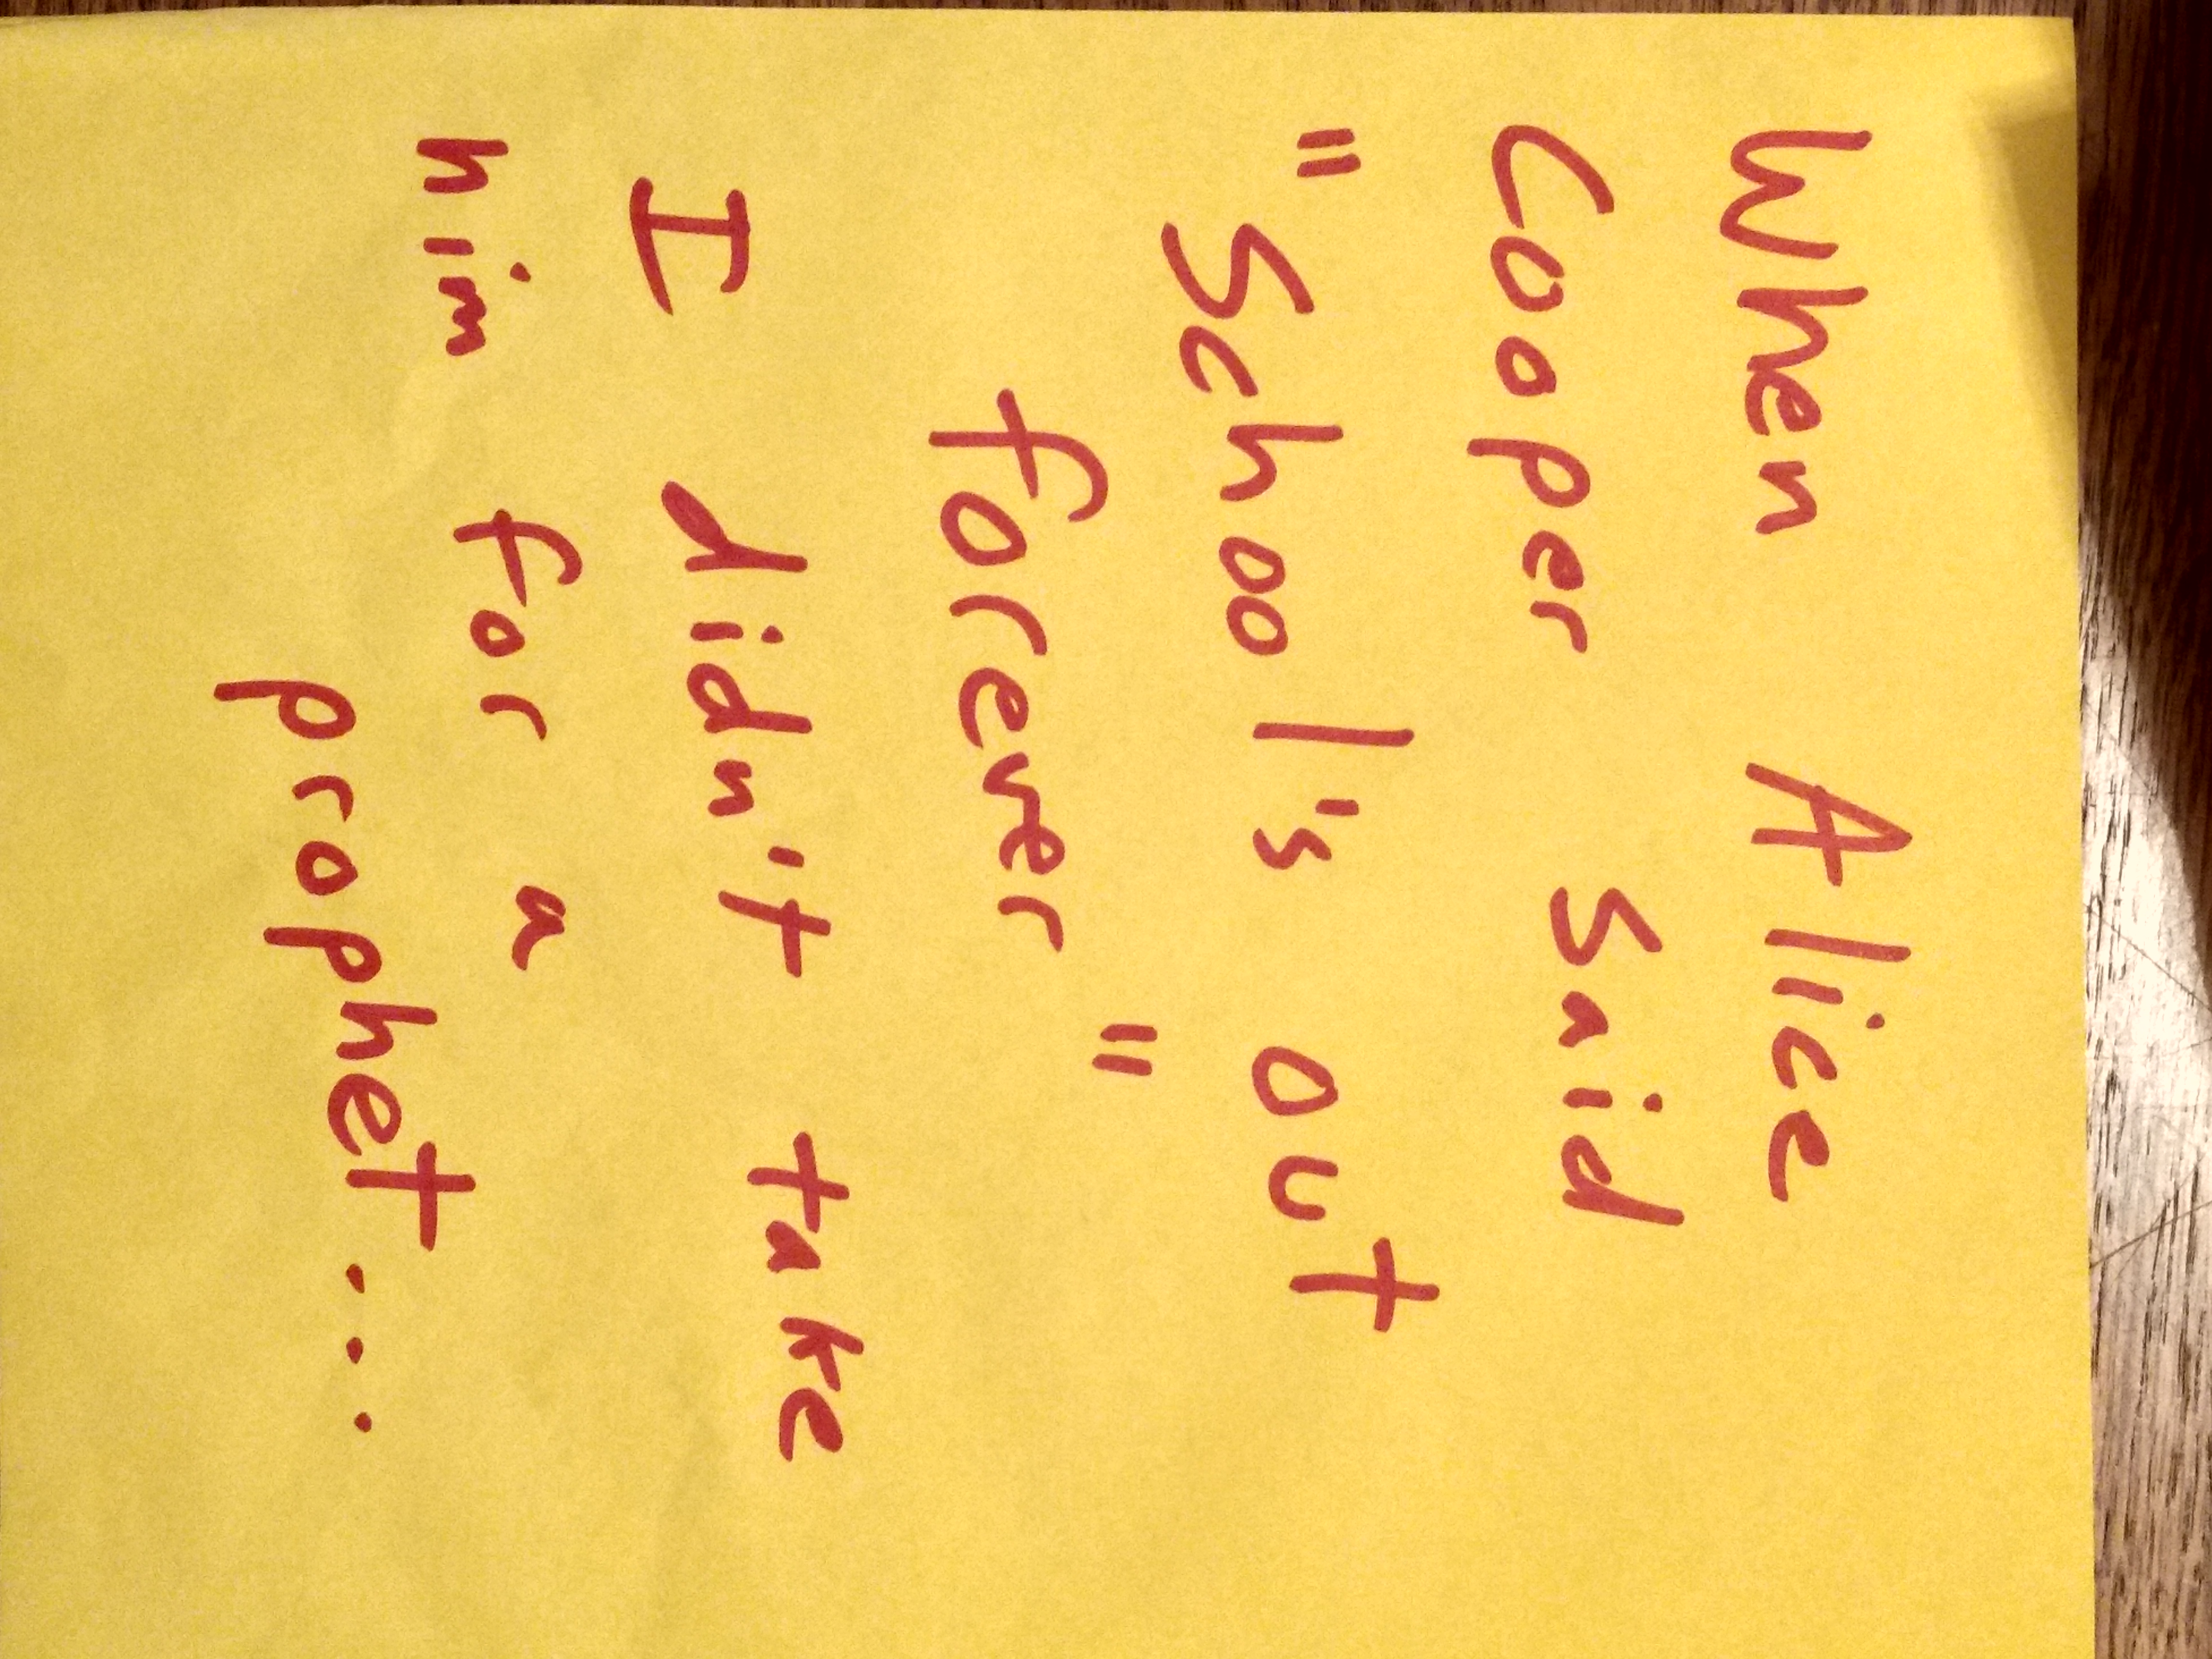 When Alice
Cooper said
"School's out
forever"
I didn't take
him for a
prophet...